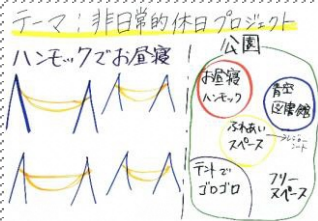 テーマ:非日常的休日プロジェクト
ハンモックでお昼寝
公園
お昼寝
ハンモック
青空
図書館
ふれあい
スペース
レジャー
シート
テントで
ゴロゴロ
フリー
スペース